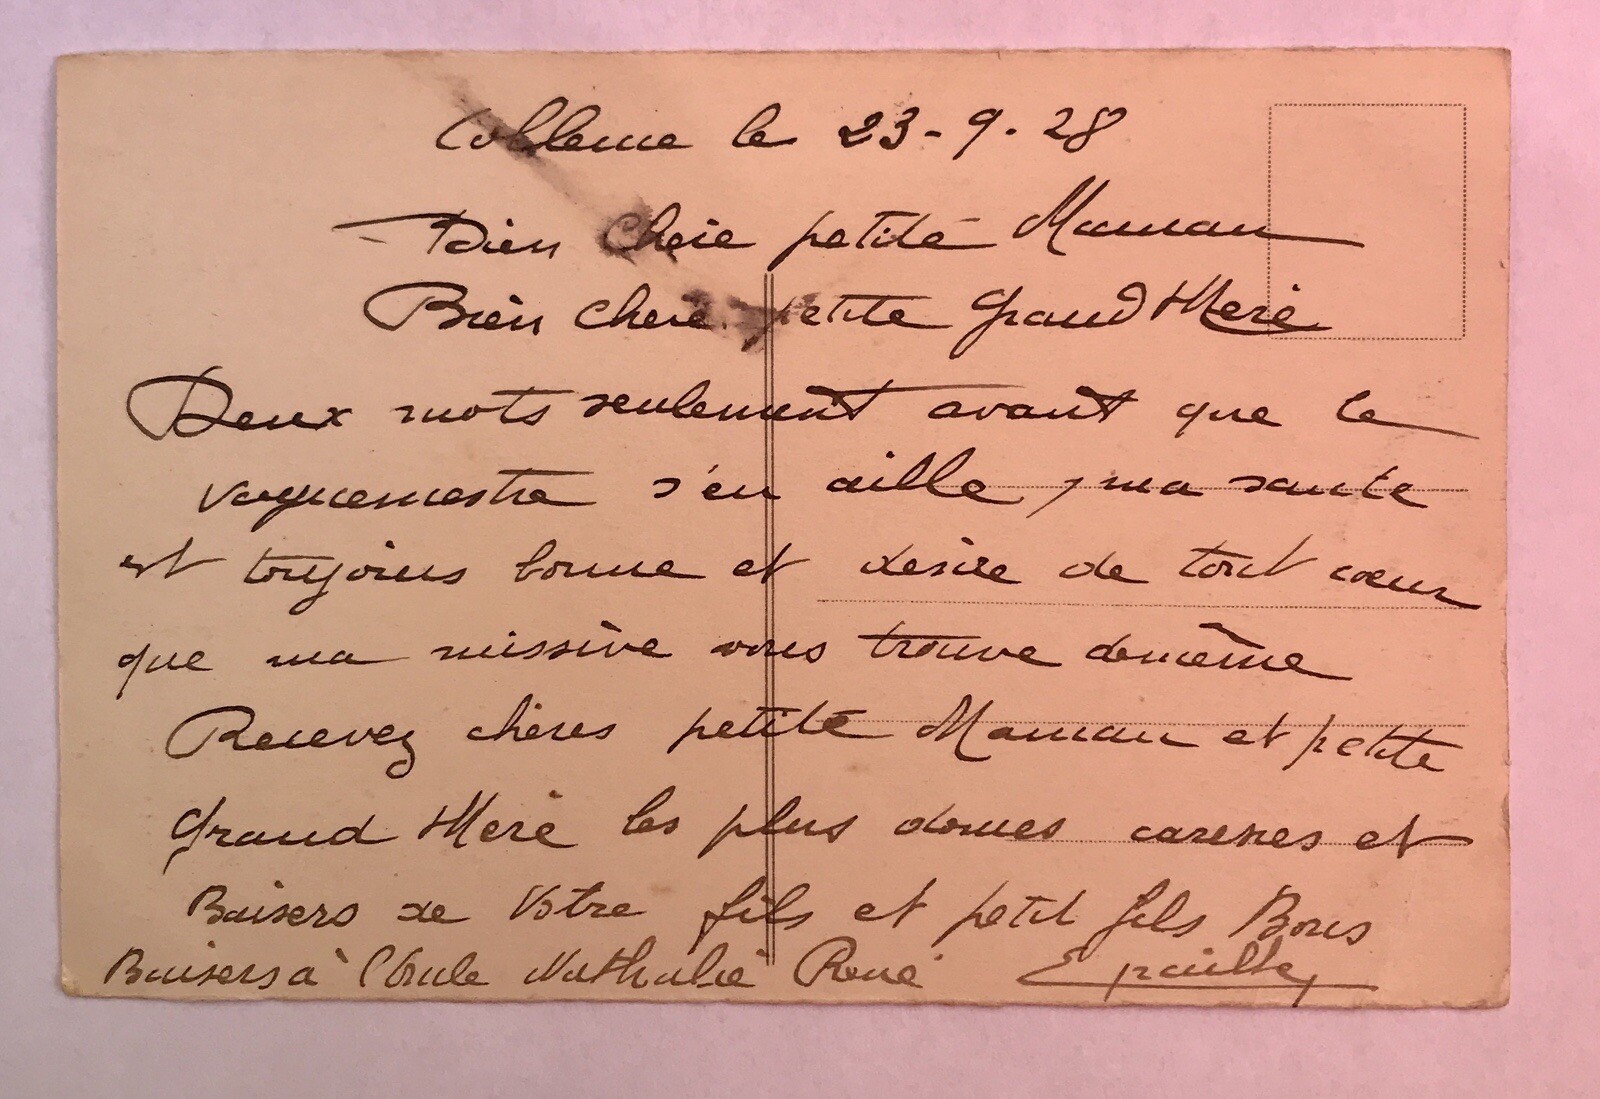 le 23-9.28
Bien Chere petite Maman
Bien Chere petite Grand Mere
Deux mots seulement avant que le
vaguemestre s'en aille, ma sante
est toujours bonne et desire de tout cœur
que ma missive vous trouve demême
Recevez chères petite Maman et petite
Grand Mere les plus douces caresses et
Baisers de Votre fils et petit fils Boris
Baisers à Nathalie René